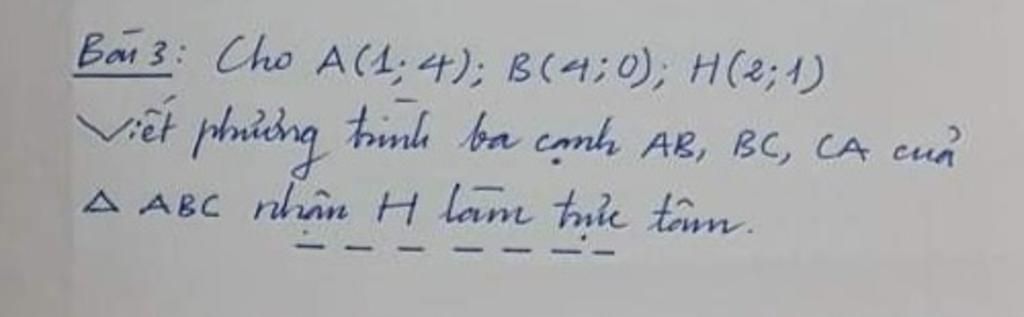 Bài 3: Cho A(1; 4); B(4; 0); H(2; 1)
Viết phương trình ba cạnh AB, BC, CA của
Δ ABC nhận H làm trực tâm.